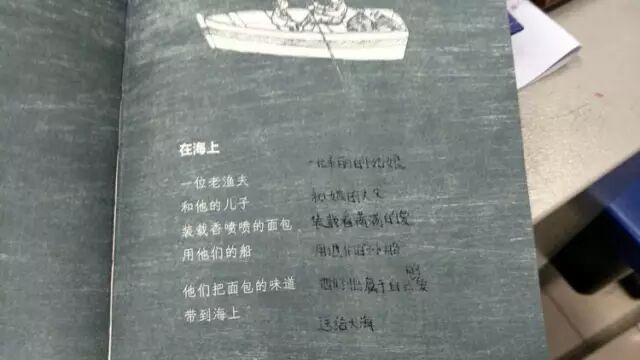 在海上
一位老渔夫
和他的儿子
装载香喷喷的面包
用他们的船
他们把面包的味道
带到海上
一位美丽的小姑娘
和她的丈夫
装载着满满的爱
用他们的小船
他们把属于自己的爱
送给大海